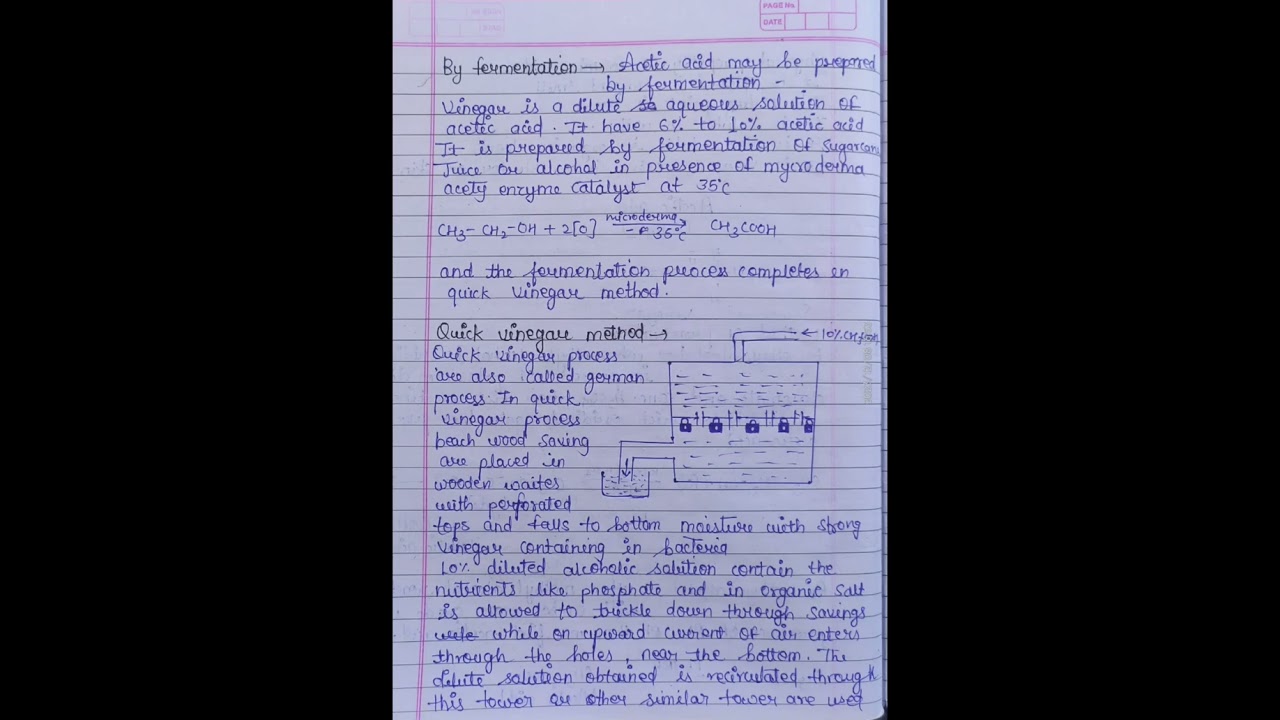 PAGE No.
DATE
By fermentation → Acetic acid may be prepared
by fermentation -
Vinegar is a dilute so aqueous solution of
acetic acid. It have 6% to 10% acetic acid
It is prepared by fermentation of sugarcane
Juice or alcohol in presence of mycroderma
acety enzyme catalyst at 35°C
CH3-CH2-OH + 2[O] microderma 35°C → CH3COOH
and the fermentation process completes in
quick vinegar method.
Quick vinegar method →
← 10%
Quick vinegar process
are also called german
process In quick
vinegar process
beach wood saving
are placed in
wooden waites
with perforated
tops and falls to bottom moisture with strong
vinegar containing in bacteria
10% diluted alcoholic solution contain the
nutrients like phosphate and in organic salt
is allowed to trickle down through savings
while on upward current of air enters
through the holes, near the bottom. The
dilute solution obtained is recirculated through
this tower or other similar tower are used